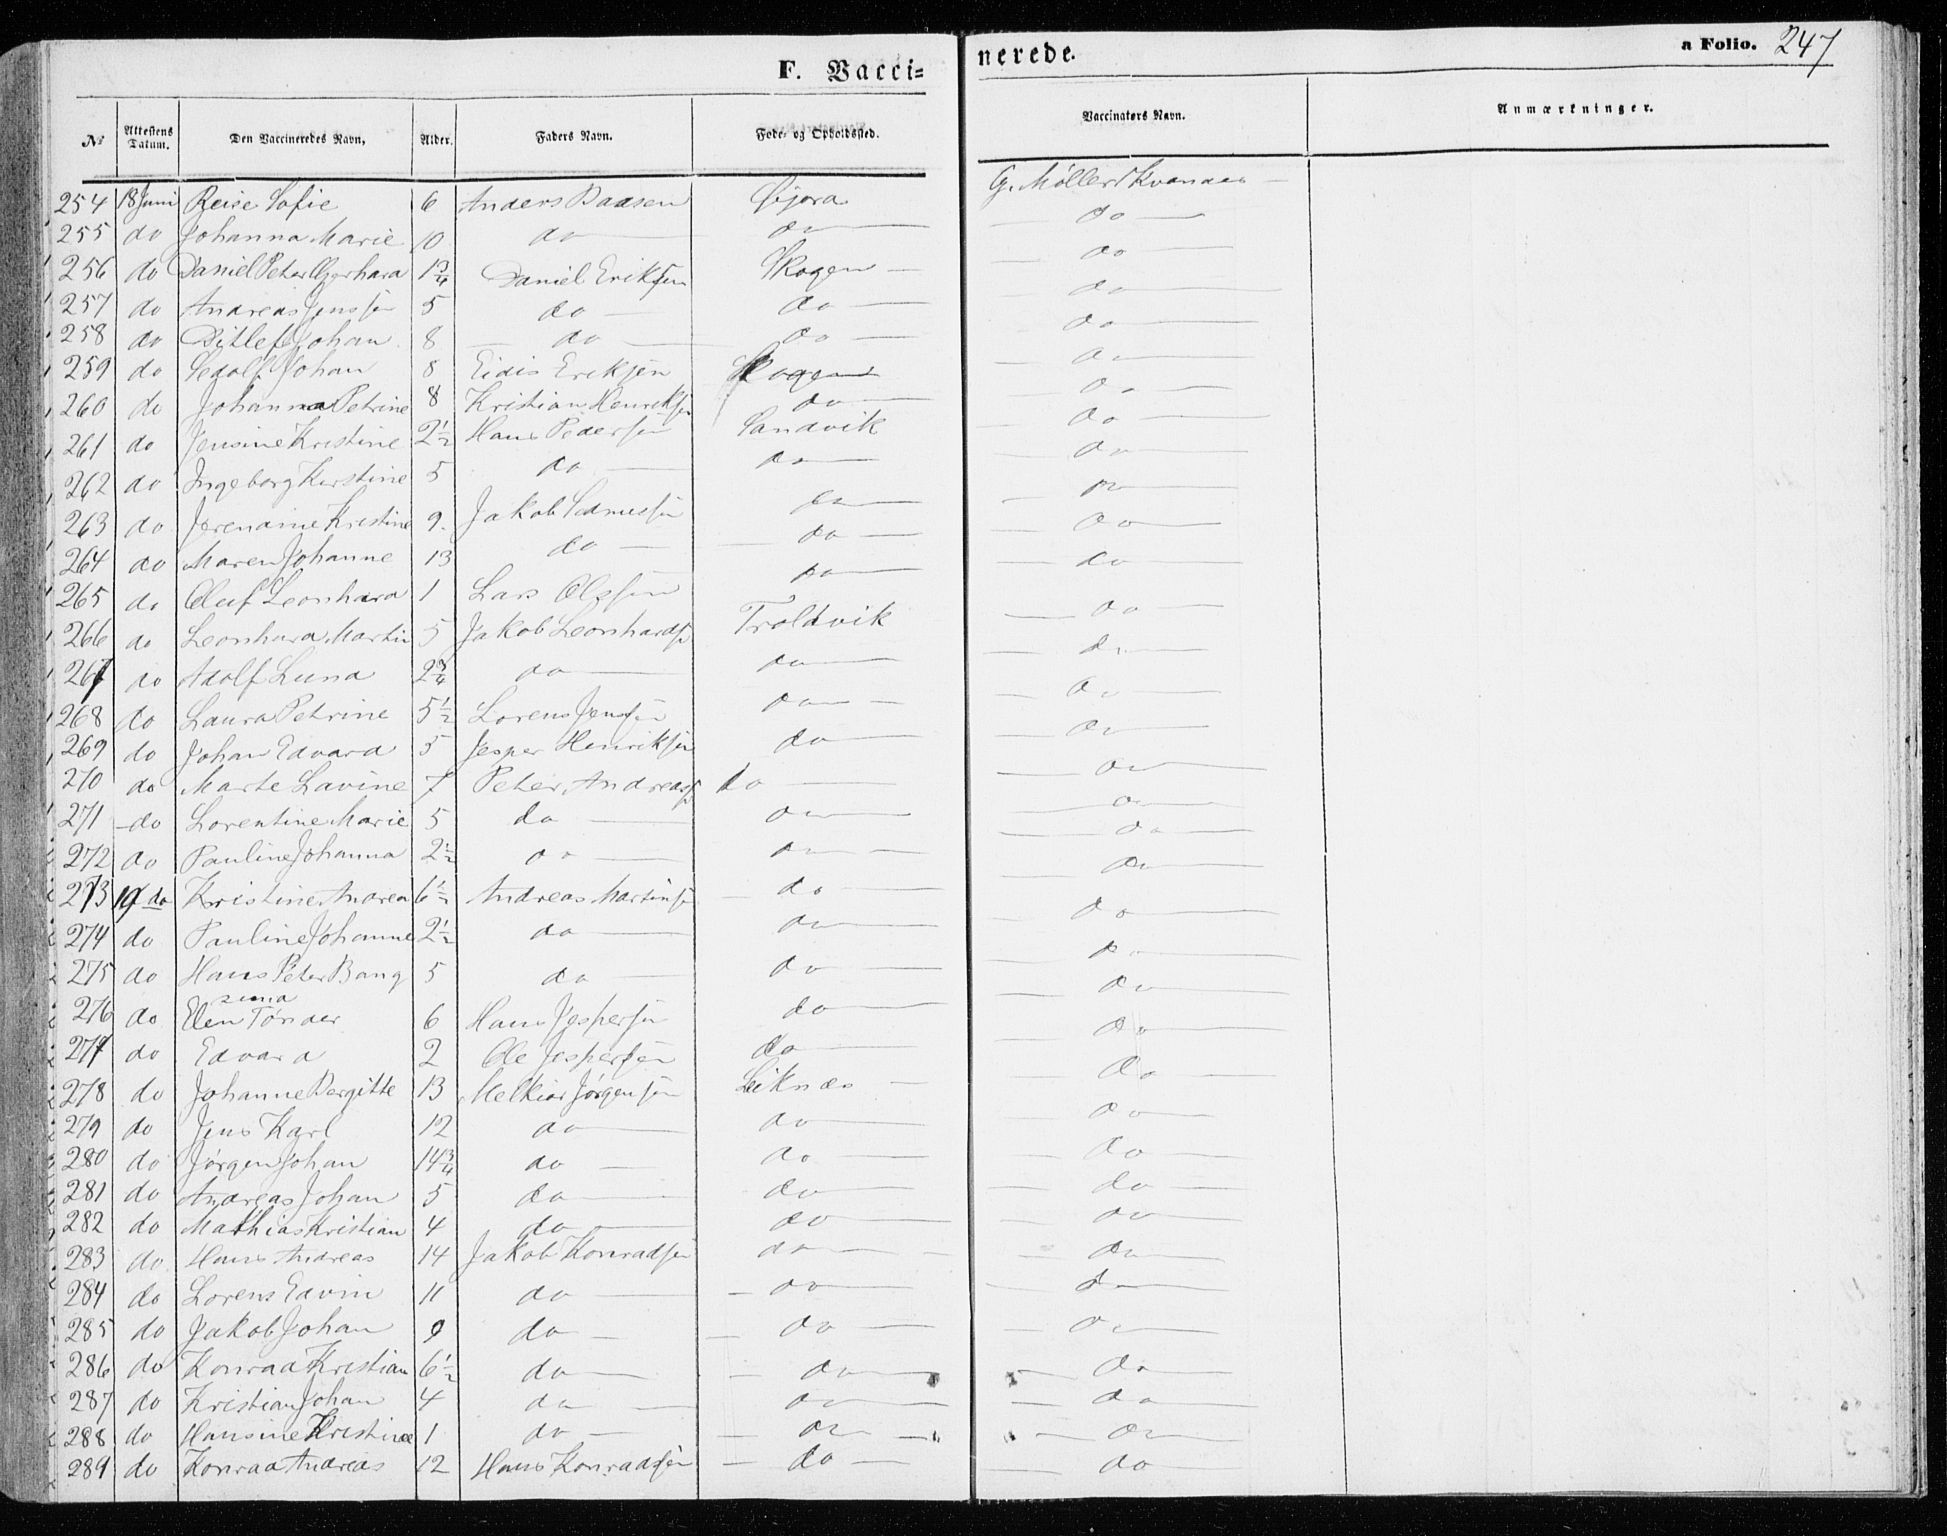 F. Vacci=
nerede.
a Folio. 247
No Attestens Datum. Den Vaccineredes Navn, Alder. Faders Navn. Føde- og Opholdssted. Vaccinators Navn. Anmærkninger.
254 18 Juni Reise Sofie 6 Anders Baasen G. Møller Kvandal
255 do Johanna Marie 10 do do do
256 do Daniel Peter Gerhard 1 3/4 Daniel Eriksen Skogen do
257 do Andreas Jenssen 5 do do do
258 do Ditlef Johan 8 do do do
259 do Sedolf Johan 8 Eidis Eriksen Skogen do
260 do Johanna Petrine 8 Kristian Henriksen do do
261 do Jensine Kristine 2 1/2 Hans Pedersen Sandvik do
262 do Ingeborg Kirstine 5 do do do
263 do Kristine 9 Jakob do do
264 do Maren Johanne 13 do do do
265 do Oluf Leonhard 1 Lars Olssen do do
266 do Leonhard Martin 5 Jakob Leonhards Troldvik do
267 do Adolf Lund 2 3/4 do do do
268 do Laura Petrine 5 1/2 Lorens Jenssen do do
269 do Johan Edvard 5 Jesper Henriksen do do
270 do Marte Lavine 7 Peter Andreass do do
271 do Lorentine Marie 5 do do do
272 do Pauline Johanna 2 1/2 do do do
273 19 do Kristine Andrea 6 1/2 Andreas Martins do do
274 do Pauline Johanne 2 1/2 do do do
275 do Hans Peter Bang 5 do do do
276 do Elen Sima Tønder 6 Hans Jespersen do do
277 do Edvard 2 Ole Jespersen do do
278 do Johanne Bergitte 13 Melkior Jørgensen Leiknes do
279 do Jens Karl 12 do do do
280 do Jørgen Johan 14 3/4 do do do
281 do Andreas Johan 5 do do do
282 do Mathias Kristian 4 do do do
283 do Hans Andreas 14 Jakob Konradsen do do
284 do Lorens Edvin 11 do do do
285 do Jakob Johan 9 do do do
286 do Konrad Kristian 6 1/2 do do do
287 do Kristian Johan 4 do do do
288 do Hansine Kristine 1 do do do
289 do Konrad Andreas 12 Hans Konradsen do do